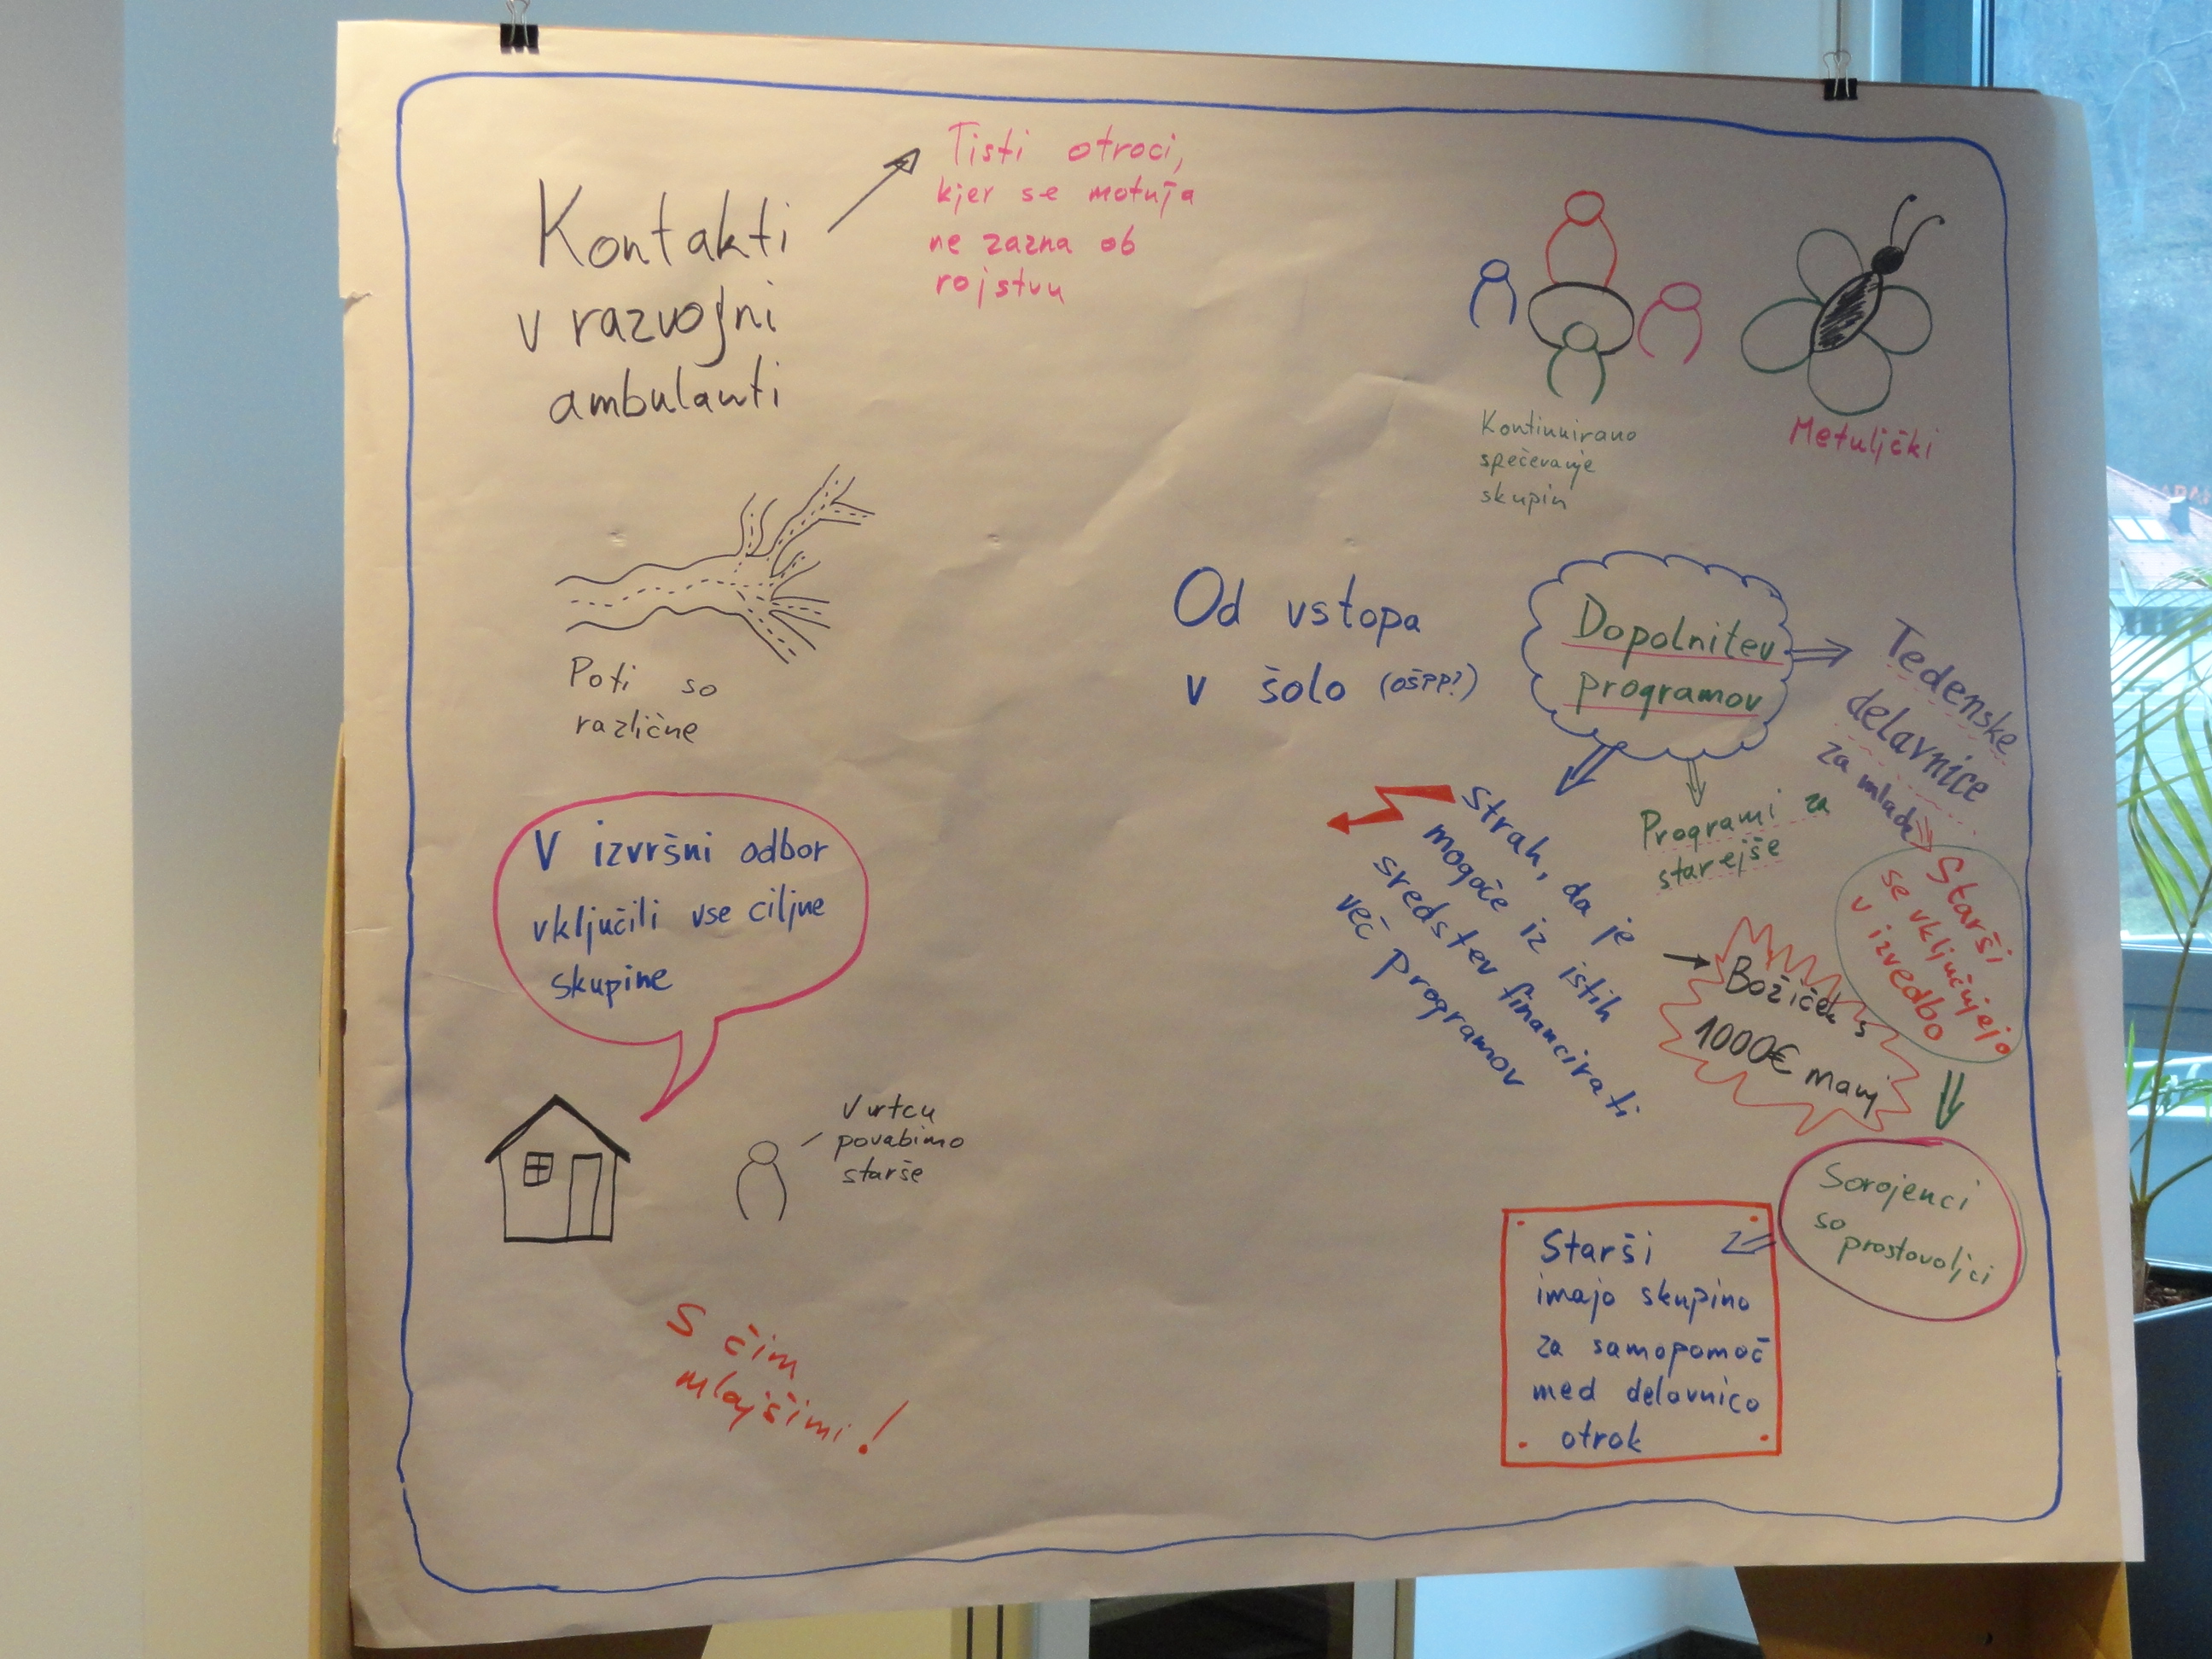 Kontakti
v razvojni
ambulanti
Tisti otroci,
kjer se motnja
ne zazna ob
rojstvu
Kontinuirano
spečevanje
skupin
Metuljčki
Poti so
različne
Od vstopa
v šolo (OŠPP?)
Dopolnitev
programov
Tedenske
delavnice
za mlade
Programi za
starejše
Strah, da je
mogoče iz istih
sredstev financirati
več programov
Starši
se vključujejo
v izvedbo
Božiček s
1000€ manj
V izvršni odbor
vključili vse ciljne
skupine
V vrtcu
povabimo
starše
Sorojenci
so
prostovoljci
Starši
imajo skupino
za samopomoč
med delavnico
otrok
S čim
mlajšimi!